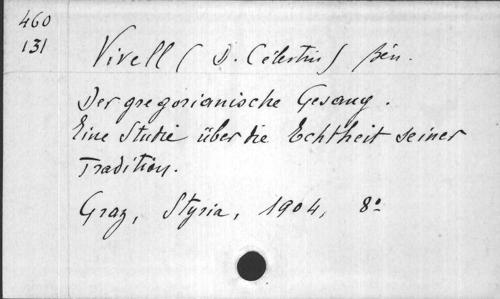 460
131
Vivell (D. Célestin) bén.
Der gregorianische Gesang.
Eine Studie über die Echtheit seiner
Tradition.
Graz, Styria, 1904, 8°